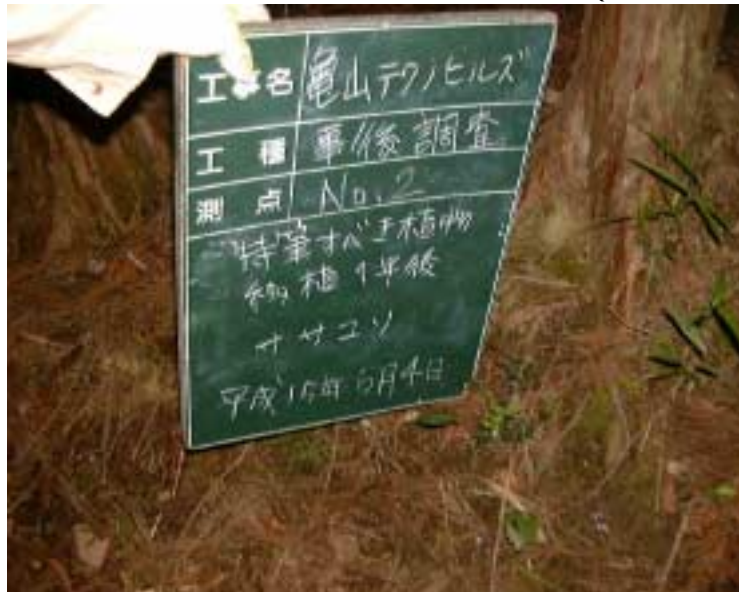 工事名 亀山テクノヒルズ
工種 事後調査
測点 No.2
特筆すべき植物
移植1年後
ササユリ
平成15年6月4日